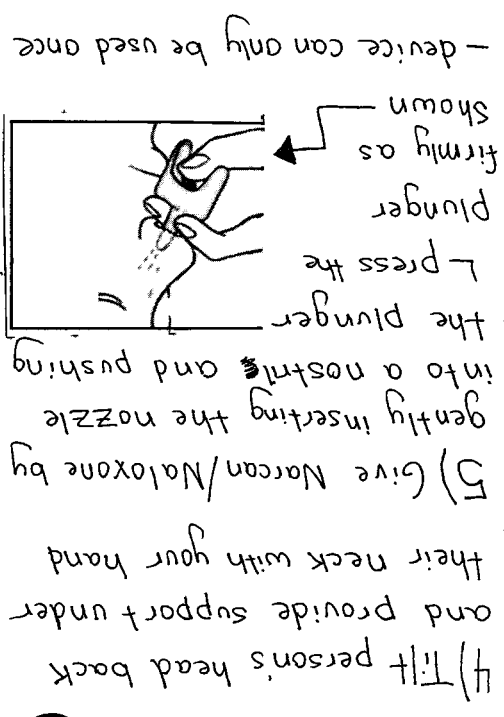 4) Tilt person's head back
and provide support under
their neck with your hand
5) Give Narcan/Naloxone by
gently inserting the nozzle
into a nostril and pushing
the plunger
press the
plunger
firmly as
shown
- device can only be used once